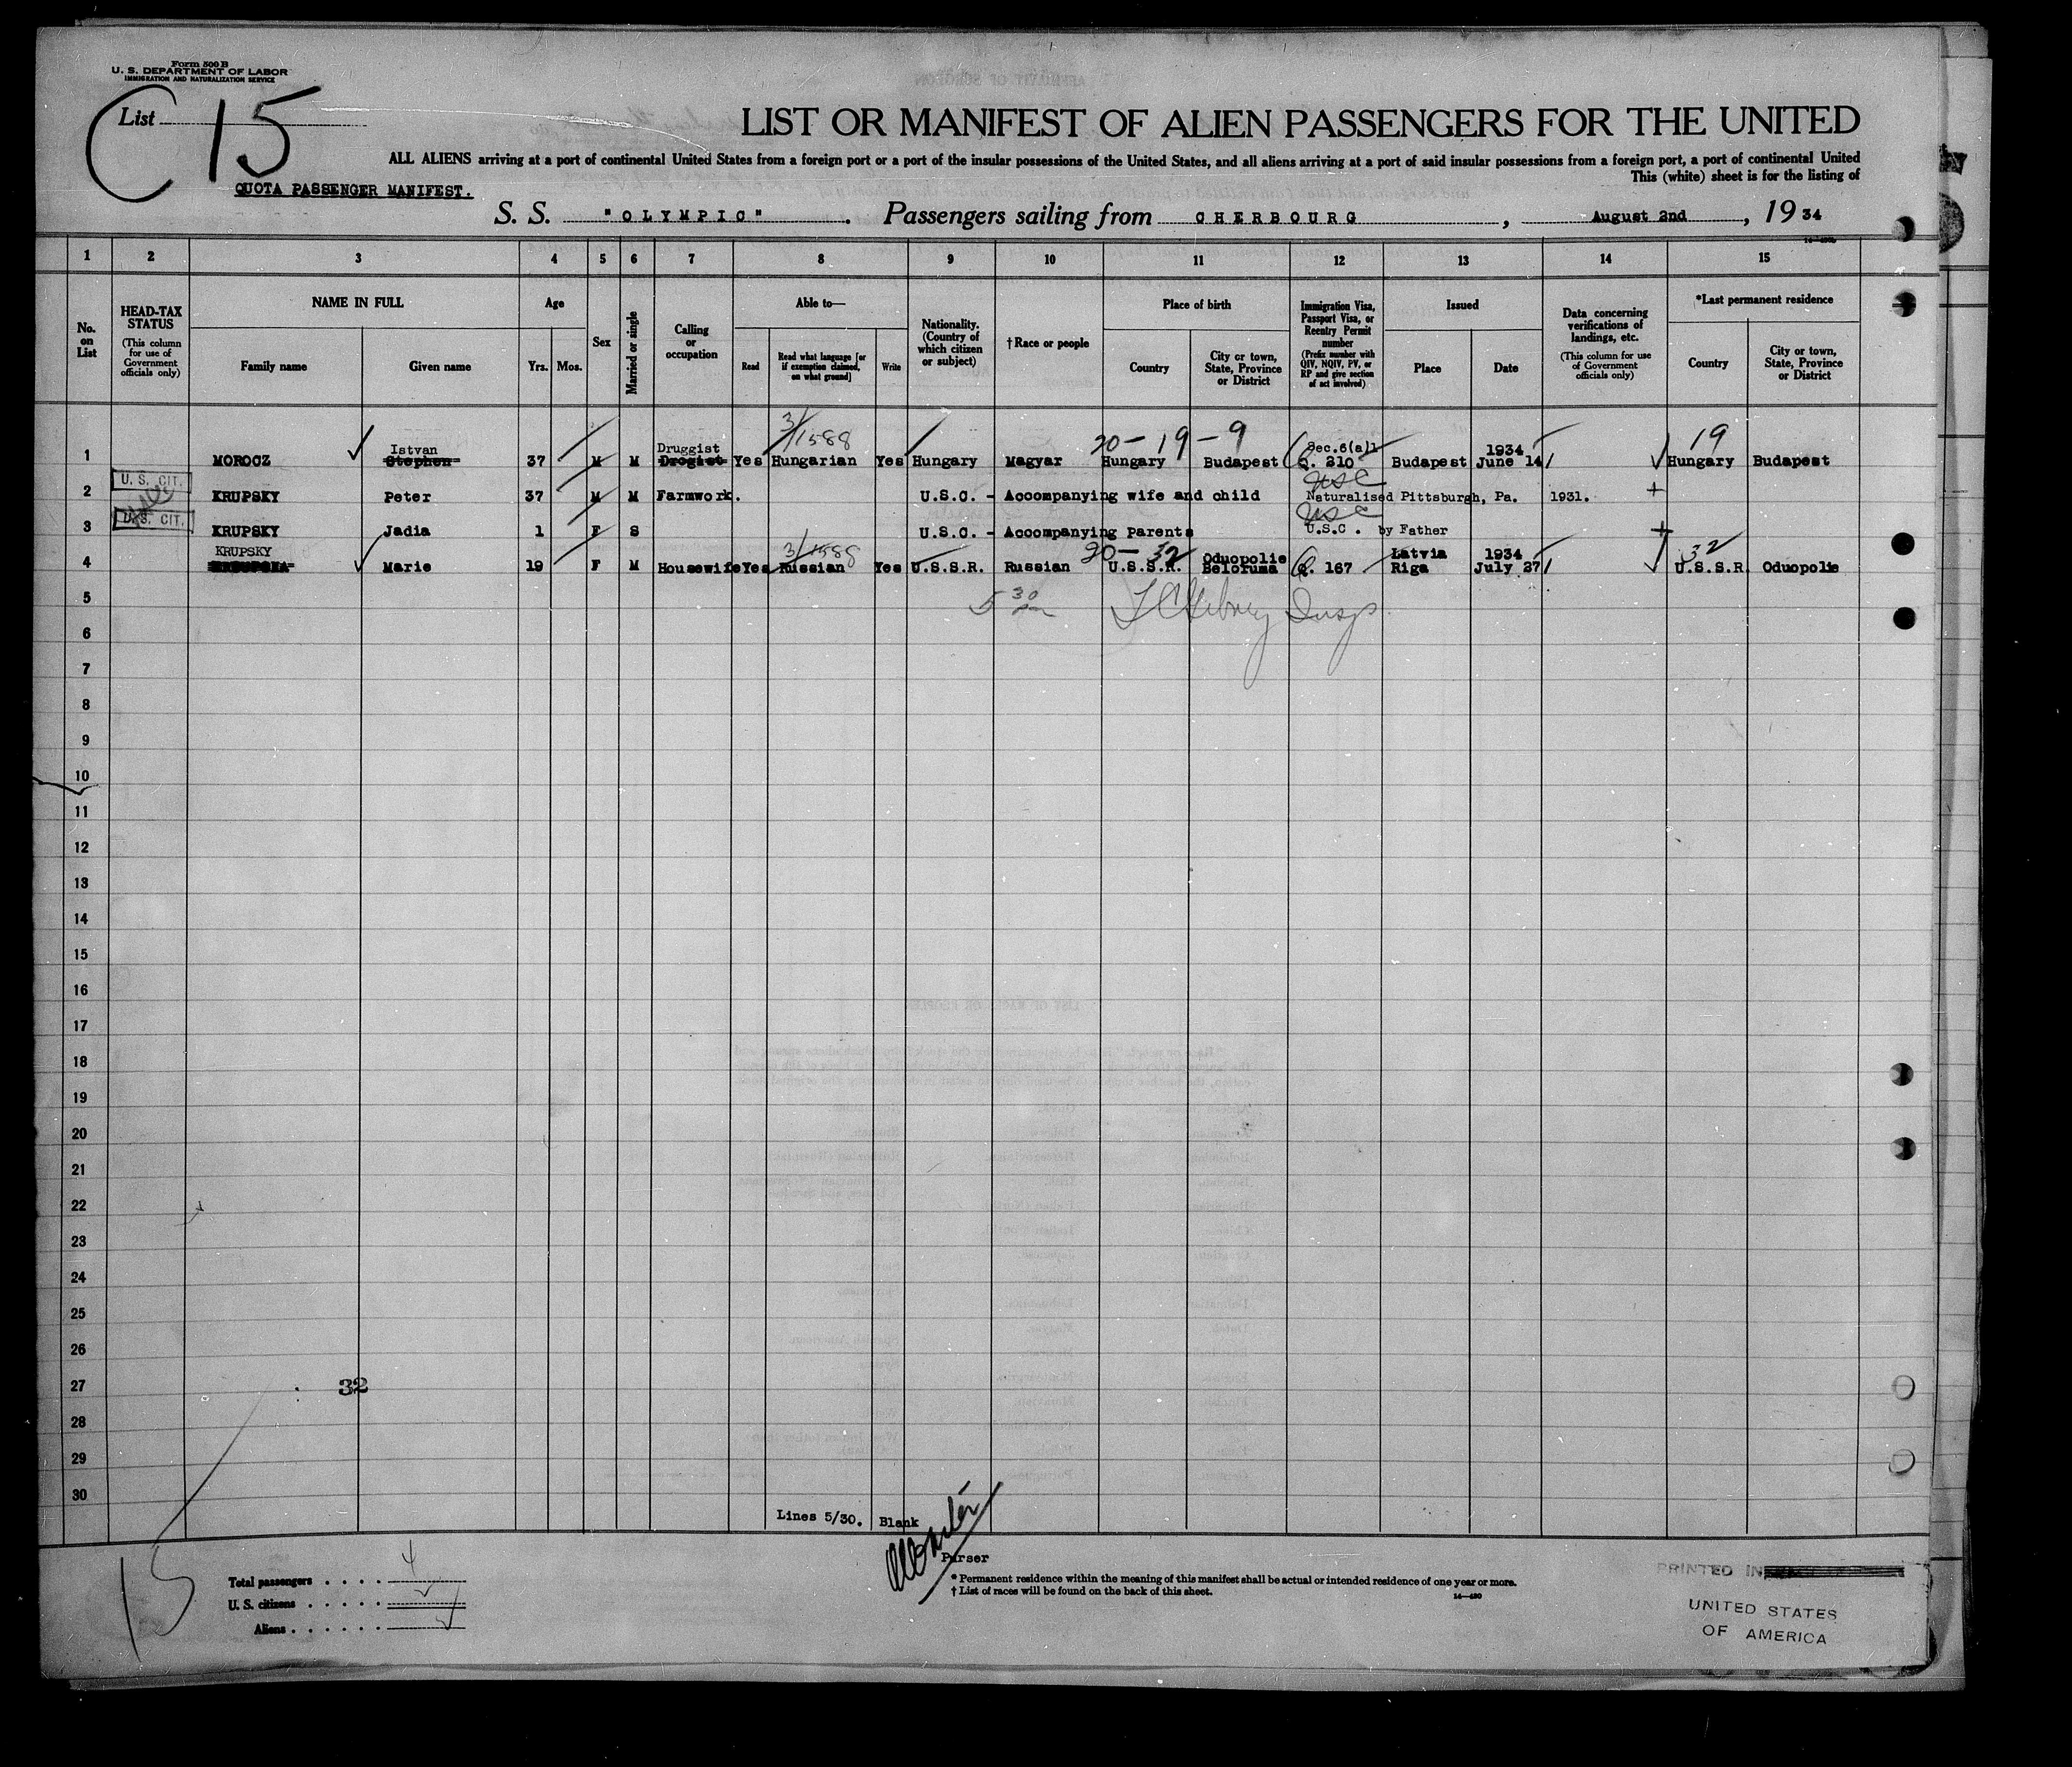 Form 500 B
U. S. DEPARTMENT OF LABOR
IMMIGRATION AND NATURALIZATION SERVICE
List 15
LIST OR MANIFEST OF ALIEN PASSENGERS FOR THE UNITED
ALL ALIENS arriving at a port of continental United States from a foreign port or a port of the insular possessions of the United States, and all aliens arriving at a port of said insular possessions from a foreign port, a port of continental United
This (white) sheet is for the listing of
QUOTA PASSENGER MANIFEST.
S. S. "OLYMPIC". Passengers sailing from CHERBOURG, August 2nd, 1934
1 2 3 4 5 6 7 8 9 10 11 12 13 14 15
No. on List
HEAD-TAX STATUS
(This column for use of Government officials only)
NAME IN FULL
Family name Given name
Age
Yrs. Mos.
Sex
Married or single
Calling or occupation
Able to—
Read
Read what language [or if exemption claimed, on what ground]
Write
Nationality. (Country of which citizen or subject)
†Race or people
Place of birth
Country City or town, State, Province or District
Immigration Visa, Passport Visa, or Reentry Permit number
(Prefix number with QIV, NQIV, PV, or RP and give section of act involved)
Issued
Place Date
Data concerning verifications of landings, etc.
(This column for use of Government officials only)
*Last permanent residence
Country City or town, State, Province or District
3/1588 20-19-9 19
Istvan Druggist Sec.6(a)1 1934
1 MOROCZ Stephen 37 M M Drogist Yes Hungarian Yes Hungary Magyar Hungary Budapest Q. 210 Budapest June 14 Hungary Budapest
U. S. CIT. USC
2 KRUPSKY Peter 37 M M Farmwork. U.S.C. - Accompanying wife and child Naturalised Pittsburgh, Pa. 1931.
U. S. CIT. USC
3 KRUPSKY Jadia 1 F S U.S.C. - Accompanying parents U.S.C. by Father
KRUPSKY 3/1588 20-32 Oduopolie Latvia 1934 32
4 Marie 19 F M Housewife Yes Russian Yes U.S.S.R. Russian U.S.S.R. Beloruma Q. 167 Riga July 27 U.S.S.R. Oduopolie
5 5 30 Insp
6
7
8
9
10
11
12
13
14
15
16
17
18
19
20
21
22
23
24
25
26
27 32
28
29
30
Lines 5/30. Blank
Purser
15
Total passengers . . . . 4
U. S. citizens . . . . .
Aliens . . . . . .
* Permanent residence within the meaning of this manifest shall be actual or intended residence of one year or more.
† List of races will be found on the back of this sheet.
14—430
PRINTED IN
UNITED STATES
OF AMERICA